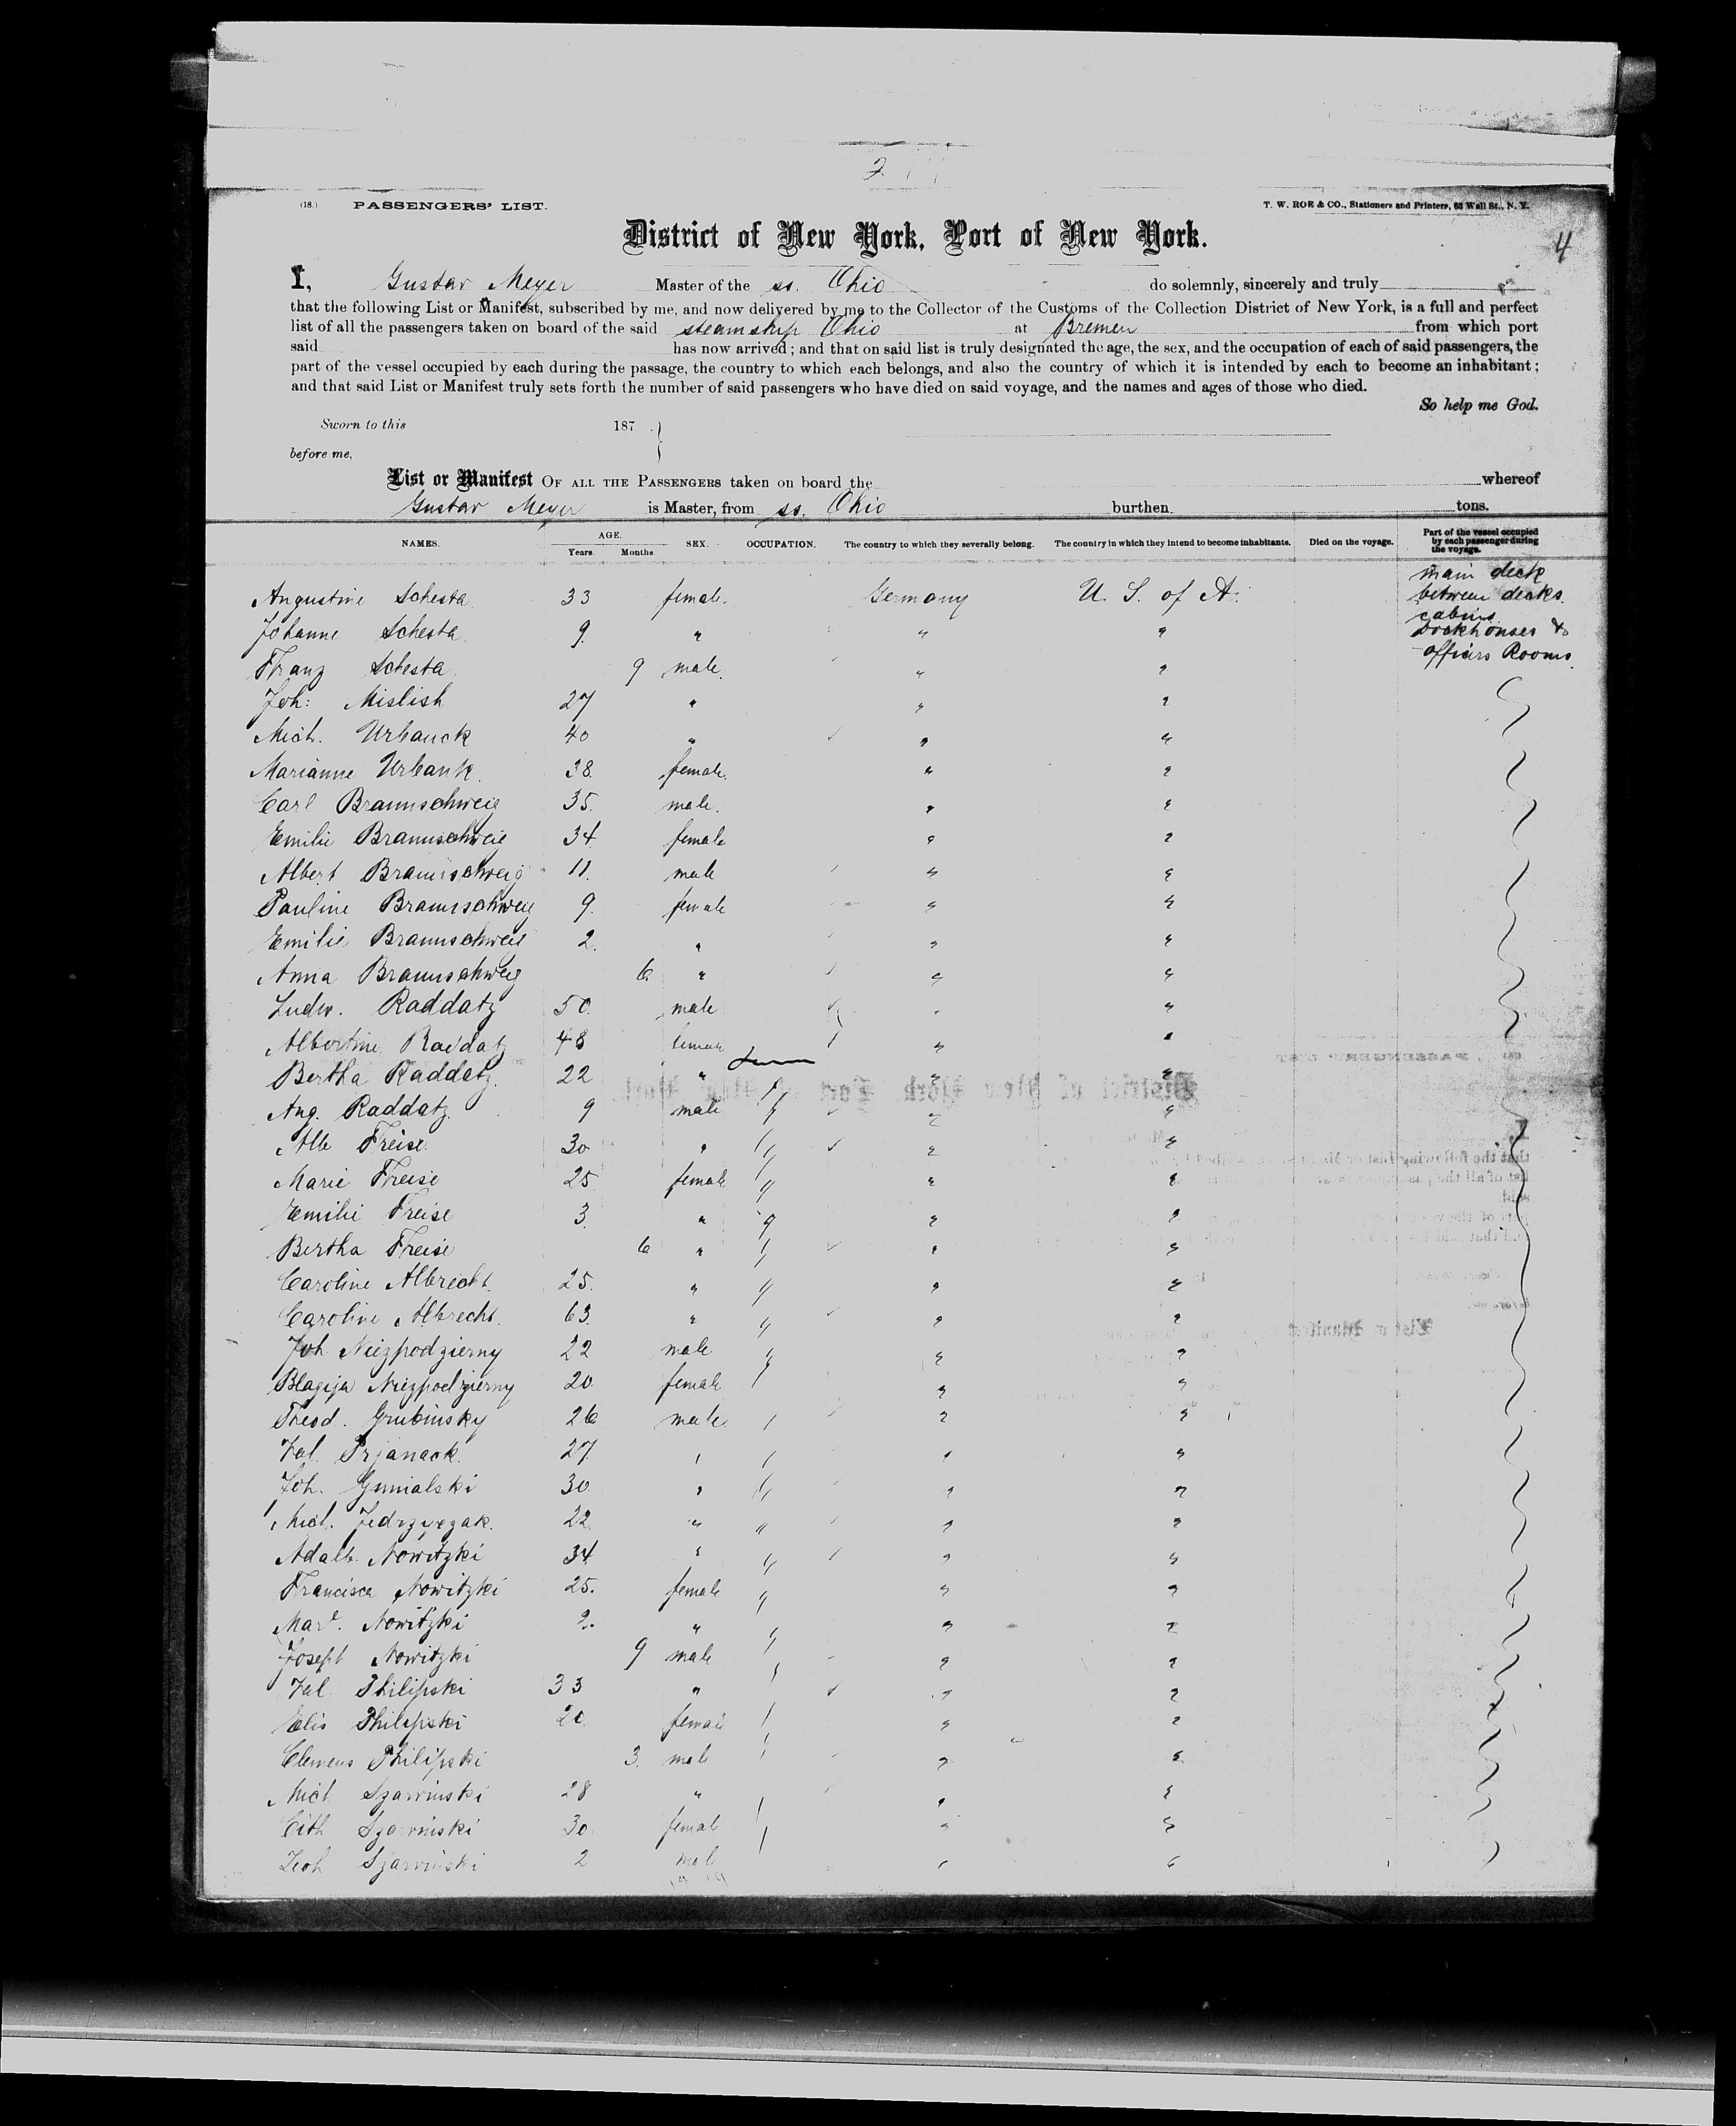 2
(18.) PASSENGERS' LIST. T. W. ROE & CO., Stationers and Printers, 63 Wall St., N. Y.
District of New York, Port of New York.
4
I, Gustav Meyer Master of the ss. Ohio do solemnly, sincerely and truly
that the following List or Manifest, subscribed by me, and now delivered by me to the Collector of the Customs of the Collection District of New York, is a full and perfect
list of all the passengers taken on board of the said steamship Ohio at Bremen from which port
said has now arrived; and that on said list is truly designated the age, the sex, and the occupation of each of said passengers, the
part of the vessel occupied by each during the passage, the country to which each belongs, and also the country of which it is intended by each to become an inhabitant;
and that said List or Manifest truly sets forth the number of said passengers who have died on said voyage, and the names and ages of those who died.
So help me God.
Sworn to this 187 .
before me,
List or Manifest OF ALL THE PASSENGERS taken on board the whereof
Gustav Meyer is Master, from ss. Ohio burthen tons.
NAMES. AGE. Years. Months. SEX. OCCUPATION. The country to which they severally belong. The country in which they intend to become inhabitants. Died on the voyage. Part of the vessel occupied by each passenger during the voyage.
main deck
Augustine Schesta 33 female. Germany U. S. of A. between decks.
cabins
Johanne Schesta 9. " " " Dockhouses &
Franz Schesta 9 male. " " officers Rooms.
Joh: Mislish 27 " " "
Mich. Urbanck 40 " " "
Marianne Urbank. 38. female. " "
Carl Braunschweig 35. male. " "
Emilie Braunschweig 34 female " "
Albert Braunschweig 11. male " "
Pauline Braunschweig 9. female " "
Emilie Braunschweig 2. " " "
Anna Braunschweig 6. " " "
Ludw. Raddatz 50. male " "
Albertine Raddatz 48 female " "
Bertha Raddatz. 22 " " "
Aug. Raddatz. 9 male " " "
Alb Freise. 30 " " " "
Marie Freise 25 female " " "
Emilie Freise 3. " " " "
Bertha Freise 6 " " " "
Caroline Albrecht. 25. " " " "
Caroline Albrecht. 63. " " " "
Joh Niezpodzierny 22 male " " "
Blagija Niezpodzierny 20. female " " "
Theod. Grubinsky 26 male. " " "
Val. Prjanack. 27. " " " "
Joh. Gunialski 30. " " " "
Mich. Jedrzyczak. 22. " " " "
Adalb. Nowitzki 34 " " " "
Francisca Nowitzki 25. female " " "
Mar. Nowitzki 2. " " " "
Joseph Nowitzki 9 male " " "
Val. Philipski 33 " " "
Elis Philipski 20. female " " "
Clemens Philipski 3. male " " "
Mich Szarvinski 28 " " "
Cith Szarvinski 30. female " " "
Szarvinski 2 male " "